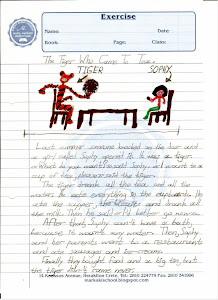 Exercise
Name: Date:
Book: Page: Class:
The Tiger Who Came To Tea
TIGER SOPHY
Last summer someone knocked on the door and
a girl called Sophy opened it. It was a tiger.
What do you want? said Sophy. I want a
cup of tea, please said the tiger.
The tiger drank all the tea, and all the
water. He ate everything in the cupboard. He
ate the supper, the biscuits and drank all
the milk. Then he said I'd better go now.
After that, Sophy couldn't have a bath,
because there wasn't any water. Then Sophy
and her parents went to a restaurant
and ate sausages and ice-cream.
Finally they bought food and a big tin, but
the tiger never came never.
markalaischool.blogspot.com